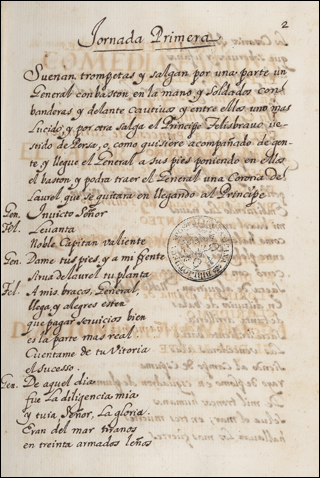 2
Jornada Primera
Suenan trompetas y salgan por una parte un
General con baston en la mano y soldados con
banderas, y delante cautivos y entre ellos uno mas
Lucido, y por otra salga el Principe Felisbravo ves-
tido de Persa, o, como quisiere acompañado de gen-
te y llegue el General a sus pies poniendo en ellos
el baston, y podra traer el General una Corona de
Laurel que se quitara en llegando al Principe
Gen. Invicto Señor
Fel. Levanta
Noble Capitan valiente
Gen. Dame tus pies, y a mi frente
Sirva de laurel tu planta
Fel. A mis brazos, General,
llega, y alegres esten
que pagar servicios bien
es la parte mas real.
Cuentame de tu Vitoria
el sucesso.
Gen. De aquel dia
fue La diligencia mia
y tuia Señor, La gloria.
Eran del mar tiranos
en treinta armados leños